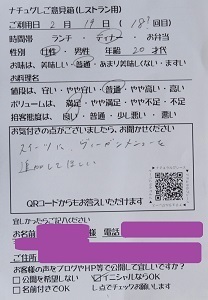 ナチュグしご意見箱(レストラン用)
ご来店日 2月19日(18:回目)
時間帯 ランチ・ディナー・お弁当
性別 女性・男性 年齢 20才代
お味は、美味しい・普通・あまり美味しくない・まずい
お料理名
値段は、安い・やや安い・普通・やや高い・高い
ボリュームは、満足・やや満足・やや不足・不足
接客態度は、良い・普通・少し悪い・悪い
お気付きの点がございましたら、お聞かせください
スイーツに、ヴィーガンメニューを
追加してほしい
QRコードからもお答えいただけます
宜しかったらご記入ください
お名前 様 電話
ご住所
お客様の声をブログやHP等で公開して宜しいですか?
公開を希望しない イニシャルならOK
名前付きでOK し点でチェックお願いします